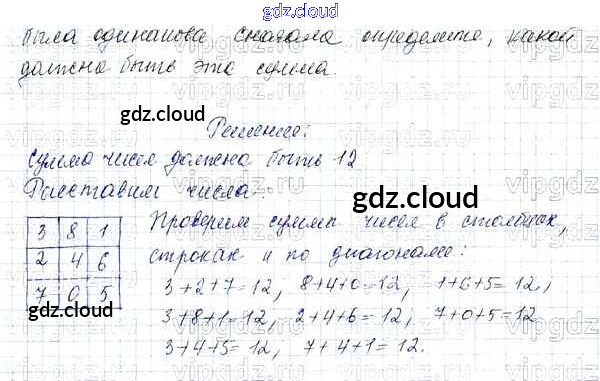 gdz.cloud
была одинакова. Сначала определите, какой
должна быть эта сумма.
gdz.cloud
Решение:
Сумма чисел должна быть 12
Расставим числа:
gdz.cloud
3 8 1
2 4 6
7 0 5
gdz.cloud
Проверим сумму чисел в столбцах,
строках и по диагонали:
3+2+7=12, 8+4+0=12, 1+6+5=12,
3+8+1=12, 2+4+6=12, 7+0+5=12
3+4+5=12, 7+4+1=12.
gdz.cloud
vipgdz.cloud